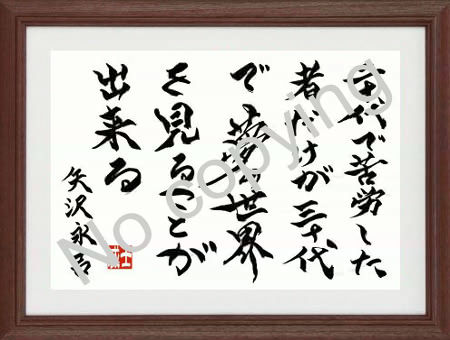 二十代で苦労した
者だけが三十代
で夢の世界
を見ることが
出来る
矢沢永吉
No copying